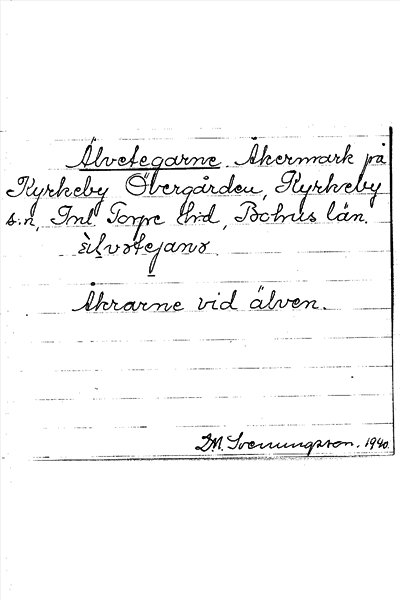 Älvetegarne. Åkermark på
Kyrkeby Övergården, Kyrkeby
s:n, Inl Torpe h:d, Bohus län.
Åkrarne vid älven.
D.M. Svenungsson. 1940.